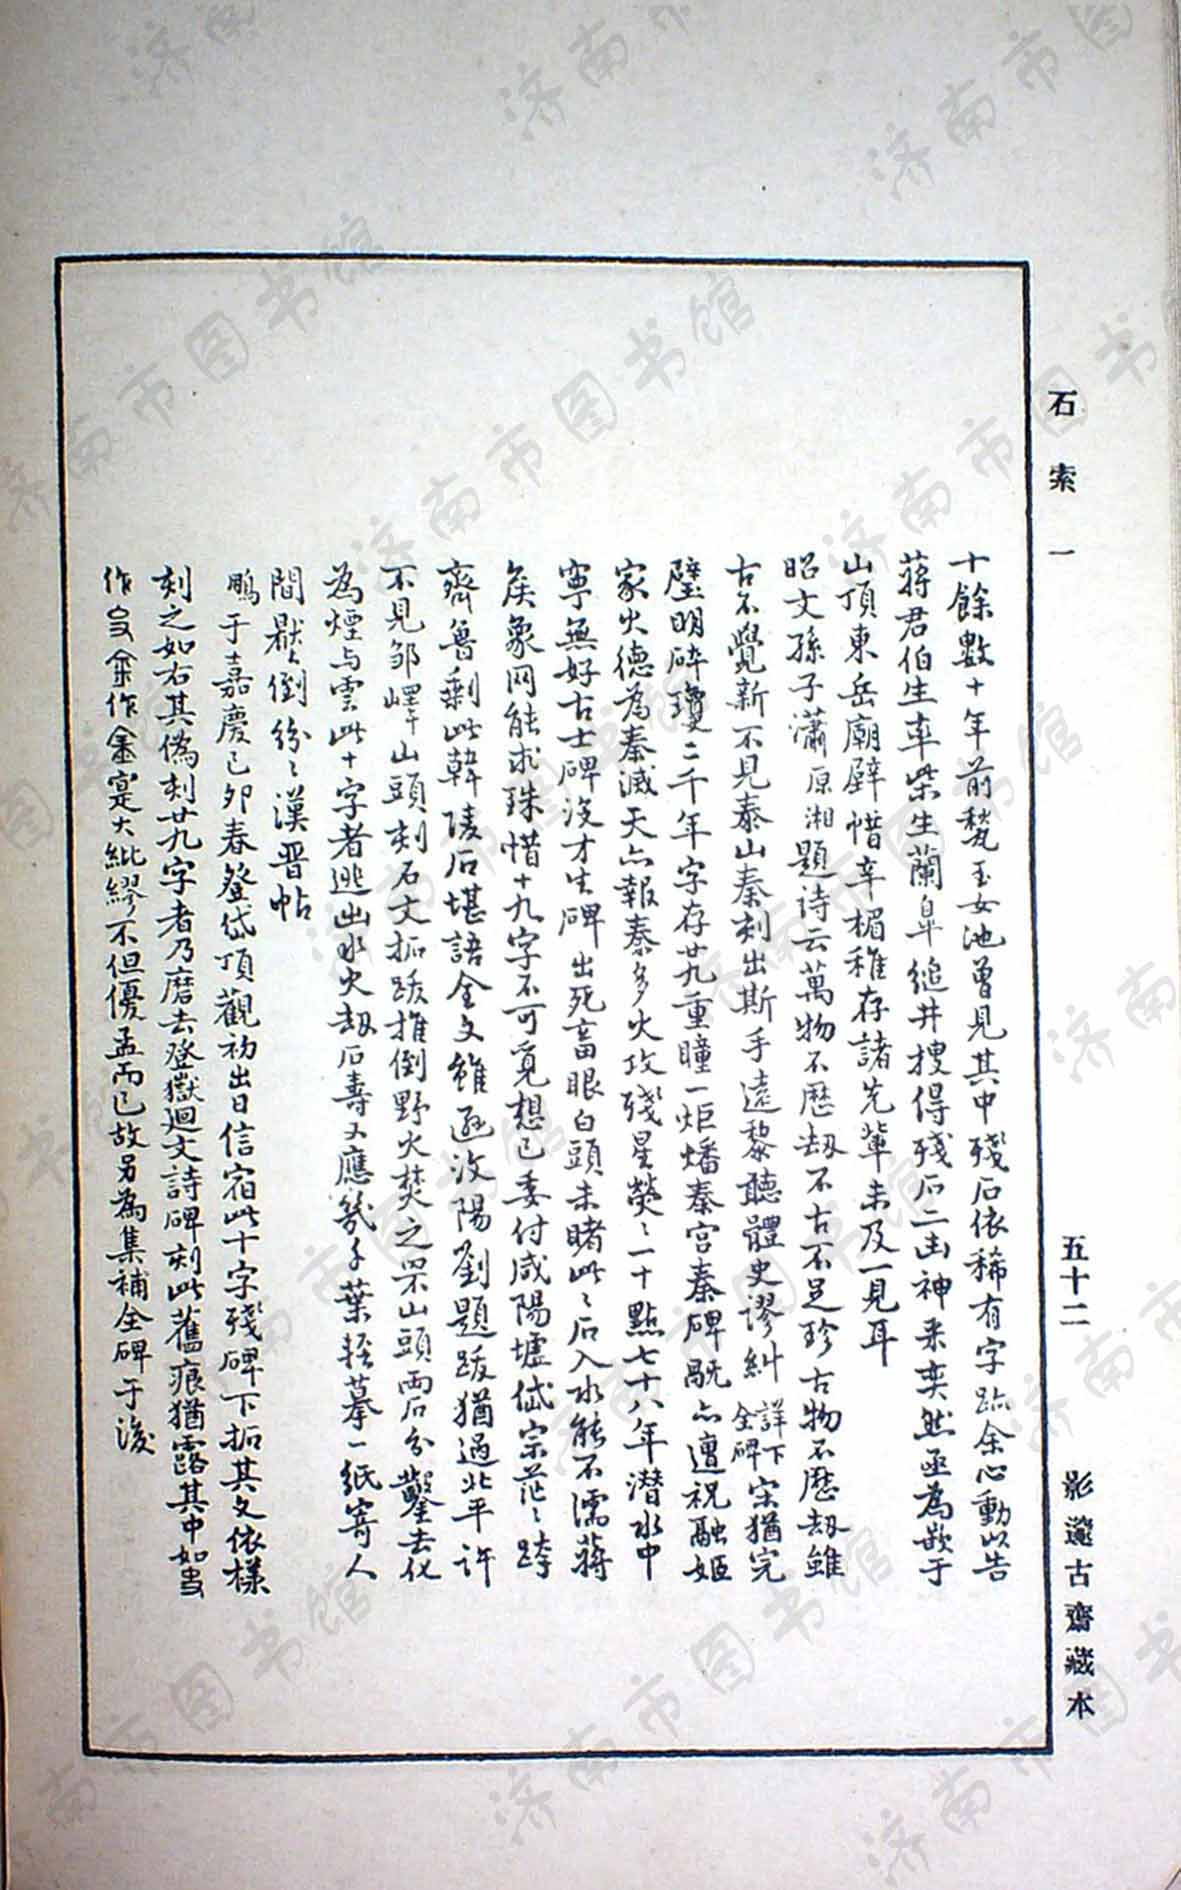 石索一
五十二
影遼古齋藏本
十餘數十年前甃玉女池曾見其中殘石依稀有字跡余心動以告
蔣君伯生率柴生蘭皐縋井搜得殘石二出神采奕然亟為嵌于
山頂東岳廟壁惜辛楣稚存諸先輩未及一見耳
昭文孫子瀟原湘題詩云萬物不歷劫不古不足珍古物不歷劫雖
古不覺新不見泰山秦刻出斯手遠黎聽體史謬糾詳下全碑宋猶完
璧明碎瓊二千年字存廿九重瞳一炬燔秦宮秦碑既亦遭祝融姬
家火德為秦滅天亦報秦多火攻殘星熒〻一十點七十八年潛水中
寧無好古士碑沒才生碑出死畜眼白頭未睹此〻石入水能不濡蔣
矦象网能求珠惜十九字不可覓想已委付咸陽墟岱宗茫〻跨
齊魯剩此韓陵石堪語全文雖遜汶陽劉題跋猶過北平許
不見鄒嶧山頭刻石文拓跋推倒野火焚之罘山頭兩石分鑿去化
為煙与雲此十字者逃出水火劫石壽又應幾千葉輕摹一紙寄人
間厭倒紛〻漢晋帖
鵬于嘉慶己卯春登岱頂觀初出日信宿此十字殘碑下拓其文依樣
刻之如右其偽刻廿九字者乃磨去登嶽迴文詩碑刻此舊痕猶露其中如
作金作寔大紕繆不但優孟而已故另為集補全碑于後
濟南市图书馆